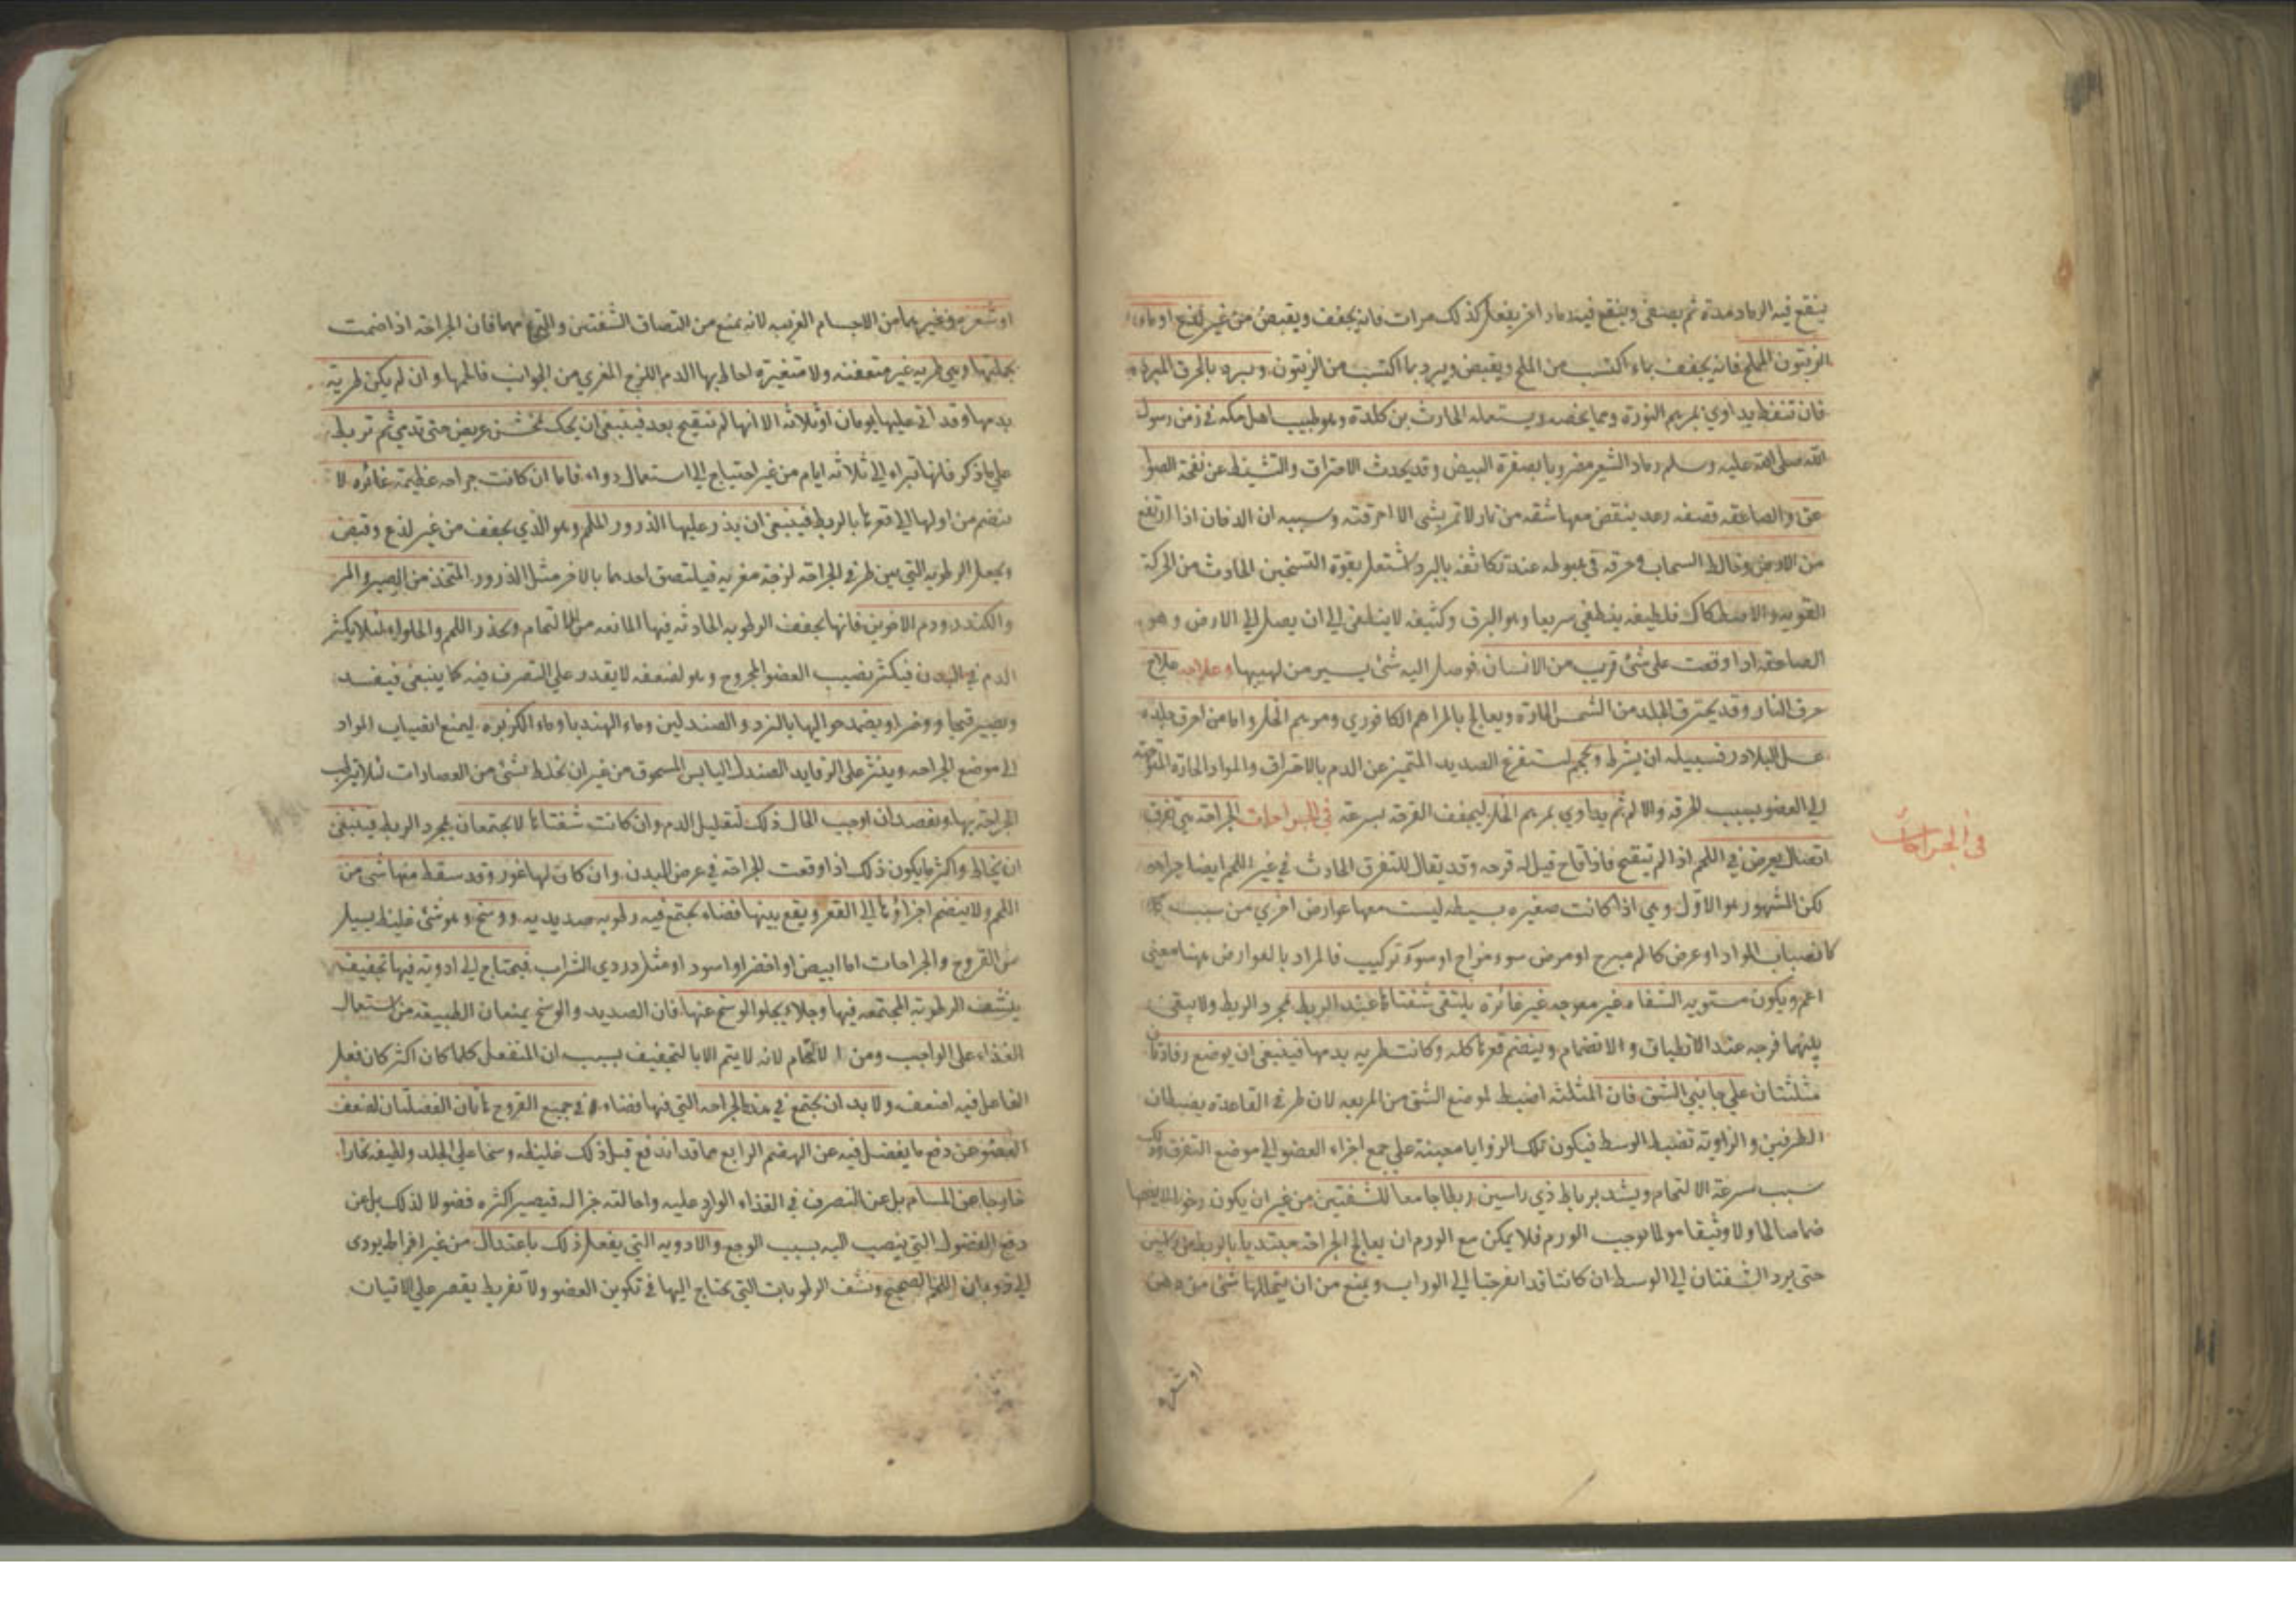 ينقع فيه الرماد مدة ثم يصفى وينقع فيه رماد اخر يفعل كذلك مرات فانه يجفف ويقبض من غير لذع او ماء
الزيتون المملح فانه يجفف بماء اكتسب من الملح ويقبض ويبرد بما اكتسب من الزيتون ويبرد بالخرق المبردة
فان تنفط يداوي بمرهم النورة ومما يخصه ويستعمله الحارث بن كلدة وهو طبيب اهل مكه في زمن رسول
الله صلى الله عليه وسلم رماد الشعير مضروبا بصفرة البيض وقد يحدث الاحتراق والتشيط عن نفحة الصواعق
والصاعقه قصفه رعد ينقض معها شقه من نار لا تمر بشئ الا احرقته وسببه ان الدخان اذا ارتفع
من الارض وخالط السحاب وخرقه في هبوطه عند تكاثفه بالبرد اشتعل بقوة التسخين الحادث من الحركة
القويه والاصطكاك فلطيفه ينطفي سريعا وهو البرق وكثيفه لا ينطفي الي ان يصل الي الارض وهو
الصاعقه اذا وقعت على شئ قريب من الانسان فوصل اليه شئ يسير من لهيبها وعلاجه علاج
حرق النار وقد يحترق الجلد من الشمس الحارة ويعالج بالمراهم الكافوري ومرهم الخل واما من احرق جلده
عسل البلادر فسبيله ان يشرط ويحجم لستفرغ الصديد المتميز عن الدم بالاحتراق والمواد الحارة المتوجهة
الي العضو بسبب الحرقه والالم ثم يداوي بمرهم الخل ليجفف القرحة بسرعة في الجراحات الجراحة هي تفرق
في الجراحات
اتصال يعرض في اللحم اذا لم يتقيح فاذا قاح قيل له قرحه وقد يقال للتفرق الحادث في غير اللحم ايضا جراحه
لكن المشهور هو الاول وهي اذا كانت صغيره بسيطه ليست معها عوارض اخري من سبب
كانصباب المواد او عرض كالم مبرح او مرض سوء مزاج او سوء تركيب فالمراد بالعوارض هنا معني
اعم ويكون مستويه الشفاه غير معوجه غير غائرة يلتقي شفتاها عند الربط بمجرد الربط ولا يبقى
بينهما فرجه عند الانطباق والانضمام وينضم قعرها كله وكانت طريه بدمها فينبغي ان يوضع رفادتان
مثلثتان علي جانبي الشق فان المثلثه اضبط لموضع الشق من المربعه لان طرفي القاعدة يضبطان
الطرفين والزاوية تضبط الوسط فيكون تلك الزوايا معينة علي جمع اجزاء العضو الي موضع التفرق وذلك
سبب سرعة الالتحام ويشد برباط ذي راسين ربطا جامعا للشفتين من غير ان يكون رخوا لا يضمها
ضما صالحا ولا وثيقا مولما يوجب الورم فلا يمكن مع الورم ان يعالج الجراحة مبتديا بالربط من
حتى يرد الشفتان الي الوسط ان كانتا قد انفرجتا الي الوراب ويمنع من ان يتخللها شئ من دهن
او شعر
او شعر وغيرها من الاجسام الغريبه لانه يمنع من التصاق الشفتين والتحامهما فان الجراحة اذا ضمت
بجملتها وهي طريه غير متعفنه ولا متغيرة احاط بها الدم اللزج المغري من الجوانب فالحمها وان لم يكن طرية
بدمها وقد اتى عليها يومان او ثلاثه الا انها لم تتقيح بعد فينبغي ان يحك بخشن عريض حتى تدمي ثم تربط
علي ما ذكر فانها تبراء الي ثلاثه ايام من غير احتياج الي استعمال دواء فاما ان كانت جراحه عظيمة غائره لا
ينضم من اولها الي قعرها بالربط فينبغي ان يذر عليها الذرور الملحم وهو الذي يجفف من غير لذع وقبض
ويجعل الرطوبه التي بين طرفي الجراحه لزجة مغريه فيلتصق احدهما بالاخر مثل الذرور المتخذ من الصبر والمر
والكندر ودم الاخوين فانها تجفف الرطوبه الحادثه فيها المانعه من الالتحام ويحذر اللحم والحلواء لئلا يكثر
الدم في البدن فيكثر نصيب العضو المجروح وهو لضعفه لا يقدر علي التصرف فيه كما ينبغي فيفسد
ويصير قيحا ووضرا ويضمد حواليها بالنزد والصندلين وماء الهندبا وماء الكزبره ليمنع انصباب المواد
الي موضع الجراحه وينثر على الرفايد الصندل اليابس المسحوق من غير ان يخلط بشئ من العصارات لئلا يرطب
الجراحة بها ويفصد ان اوجب الحال ذلك لتقليل الدم وان كانت شفتاها لا يجتمعان بمجرد الربط فينبغي
ان يخاط واكثر ما يكون ذلك اذا وقعت الجراحة في عرض البدن وان كان لها غور وقد سقط منها شئ من
اللحم ولا ينضم اجزاؤها الي القعر ويقع بينها فضاء يجتمع فيه رطوبه صديديه ووسخ وهو شئ غليظ يسيل
من القروح والجراحات اما ابيض او اخضر او اسود او مثل دردي الشراب فيحتاج الي ادوية فيها تجفيف
ينشف الرطوبة المجتمعه فيها وجلاء يجلو الوسخ عنها فان الصديد والوسخ يمنعان الطبيعه من استعمال
الغذاء على الواجب ومن الالتحام لانه لا يتم الا بالتجفيف بسبب ان المنفعل كلما كان اكثر كان فعل
الفاعل فيه اضعف ولا بد ان يجتمع في هذه الجراحه التي فيها فضاء وفي جميع القروح هاتان الفضلتان لضعف
العضو عن دفع ما يفضل فيه عن الهضم الرابع مما قد اندفع قبل ذلك غليظه وسخا علي الجلد ولطيفه بخارا
خارجا عن المسام بل عن التصرف في الغذاء الوارد عليه واحالته جزاله فيصير اكثره فضولا لذلك بل عن
دفع الفضول التي ينصب اليه بسبب الوجع والادويه التي يفعل ذلك باعتدال من غير افراط يودي
الي ذوبان اللحم الصحيح ونشف الرطوبات التي يحتاج اليها في تكوين العضو ولا تفريط يقصر علي الاتيان